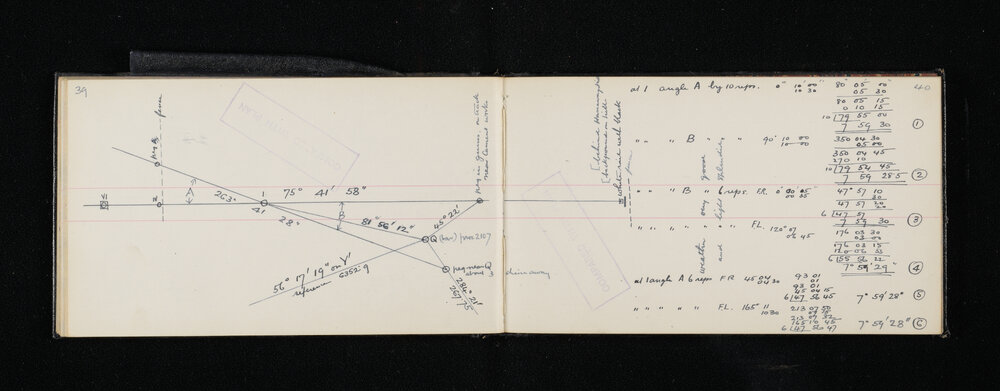 39
fence
Peg B
A
263°
1
41
28"
75° 41' 58"
B
81° 56' 12"
45° 22'
Q
peg near Q
about 3
284° 21'
26775
56° 17' 19" on γ'
reference 6352·9
peg in gravel on track
near cement works
(behind
(background on hill
white rail with black
fence
weather very good
and light
40
at 1 angle A by 10 reps. 0° 10 00
10 30
80 05 00
05 30
80 05 15
0 10 15
10 |79 55 00
7 59 30
1
" " B " " 40' 10 00
10 00
350 04 30
05 00
350 04 45
270 10
10 |79 54 45
7 59 28·5
2
" " " B " 6 reps. FR. 0° 00 05
00 05
47° 57 10
30
47 57 20
20
6 |47 57
7 59 30
3
" " " " " FL. 120° 07
06 45
176 03 30
03 00
176 03 15
6 |55 56 22
7° 59' 29"
4
at 1 angle A 6 reps FR 45 04
04 30
93 01
01
93 01
45 04 15
6 |47 56 45
7° 59' 28"
5
" " " " " FL. 165° 11
10 30
213 07 50
165 10 45
6 |47 56 47
7° 59' 28"
6